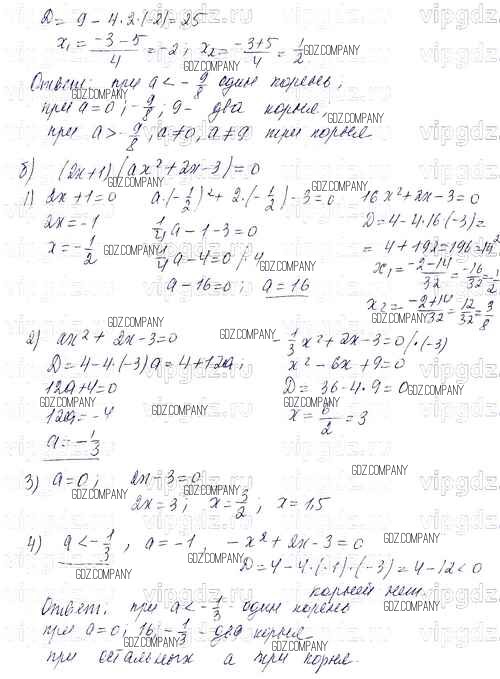 D = 9 - 4·2·(-2) = 25
x₁ = (-3-5)/4 = -2; x₂ = (-3+5)/4 = 1/2
Ответ: при a < -9/8 один корень;
при a=0; -9/8; 9 - два корня
при a > -9/8, a≠0, a≠9 три корня
б) (2x+1)(ax²+2x-3)=0
1) 2x+1=0
2x=-1
x=-1/2
a·(-1/2)²+2·(-1/2)-3=0
1/4a-1-3=0
1/4a-4=0 /·4
a-16=0; a=16
16x²+2x-3=0
D=4-4·16(-3)=
=4+192=196=14²
x₁=(-2-14)/32=-16/32=-1/2
x₂=(-2+14)/32=12/32=3/8
2) ax²+2x-3=0
D=4-4·(-3)a=4+12a;
12a+4=0
12a=-4
a=-1/3
-1/3x²+2x-3=0 /·(-3)
x²-6x+9=0
D=36-4·9=0
x=6/2=3
3) a=0; 2x-3=0
2x=3; x=3/2; x=1,5
4) a<-1/3, a=-1, -x²+2x-3=0
D=4-4·(-1)·(-3)=4-12<0
корней нет.
Ответ: при a<-1/3 - один корень
при a=0; 16; -1/3 - два корня
при остальных a три корня.
GDZ.COMPANY
vipgdz.ru